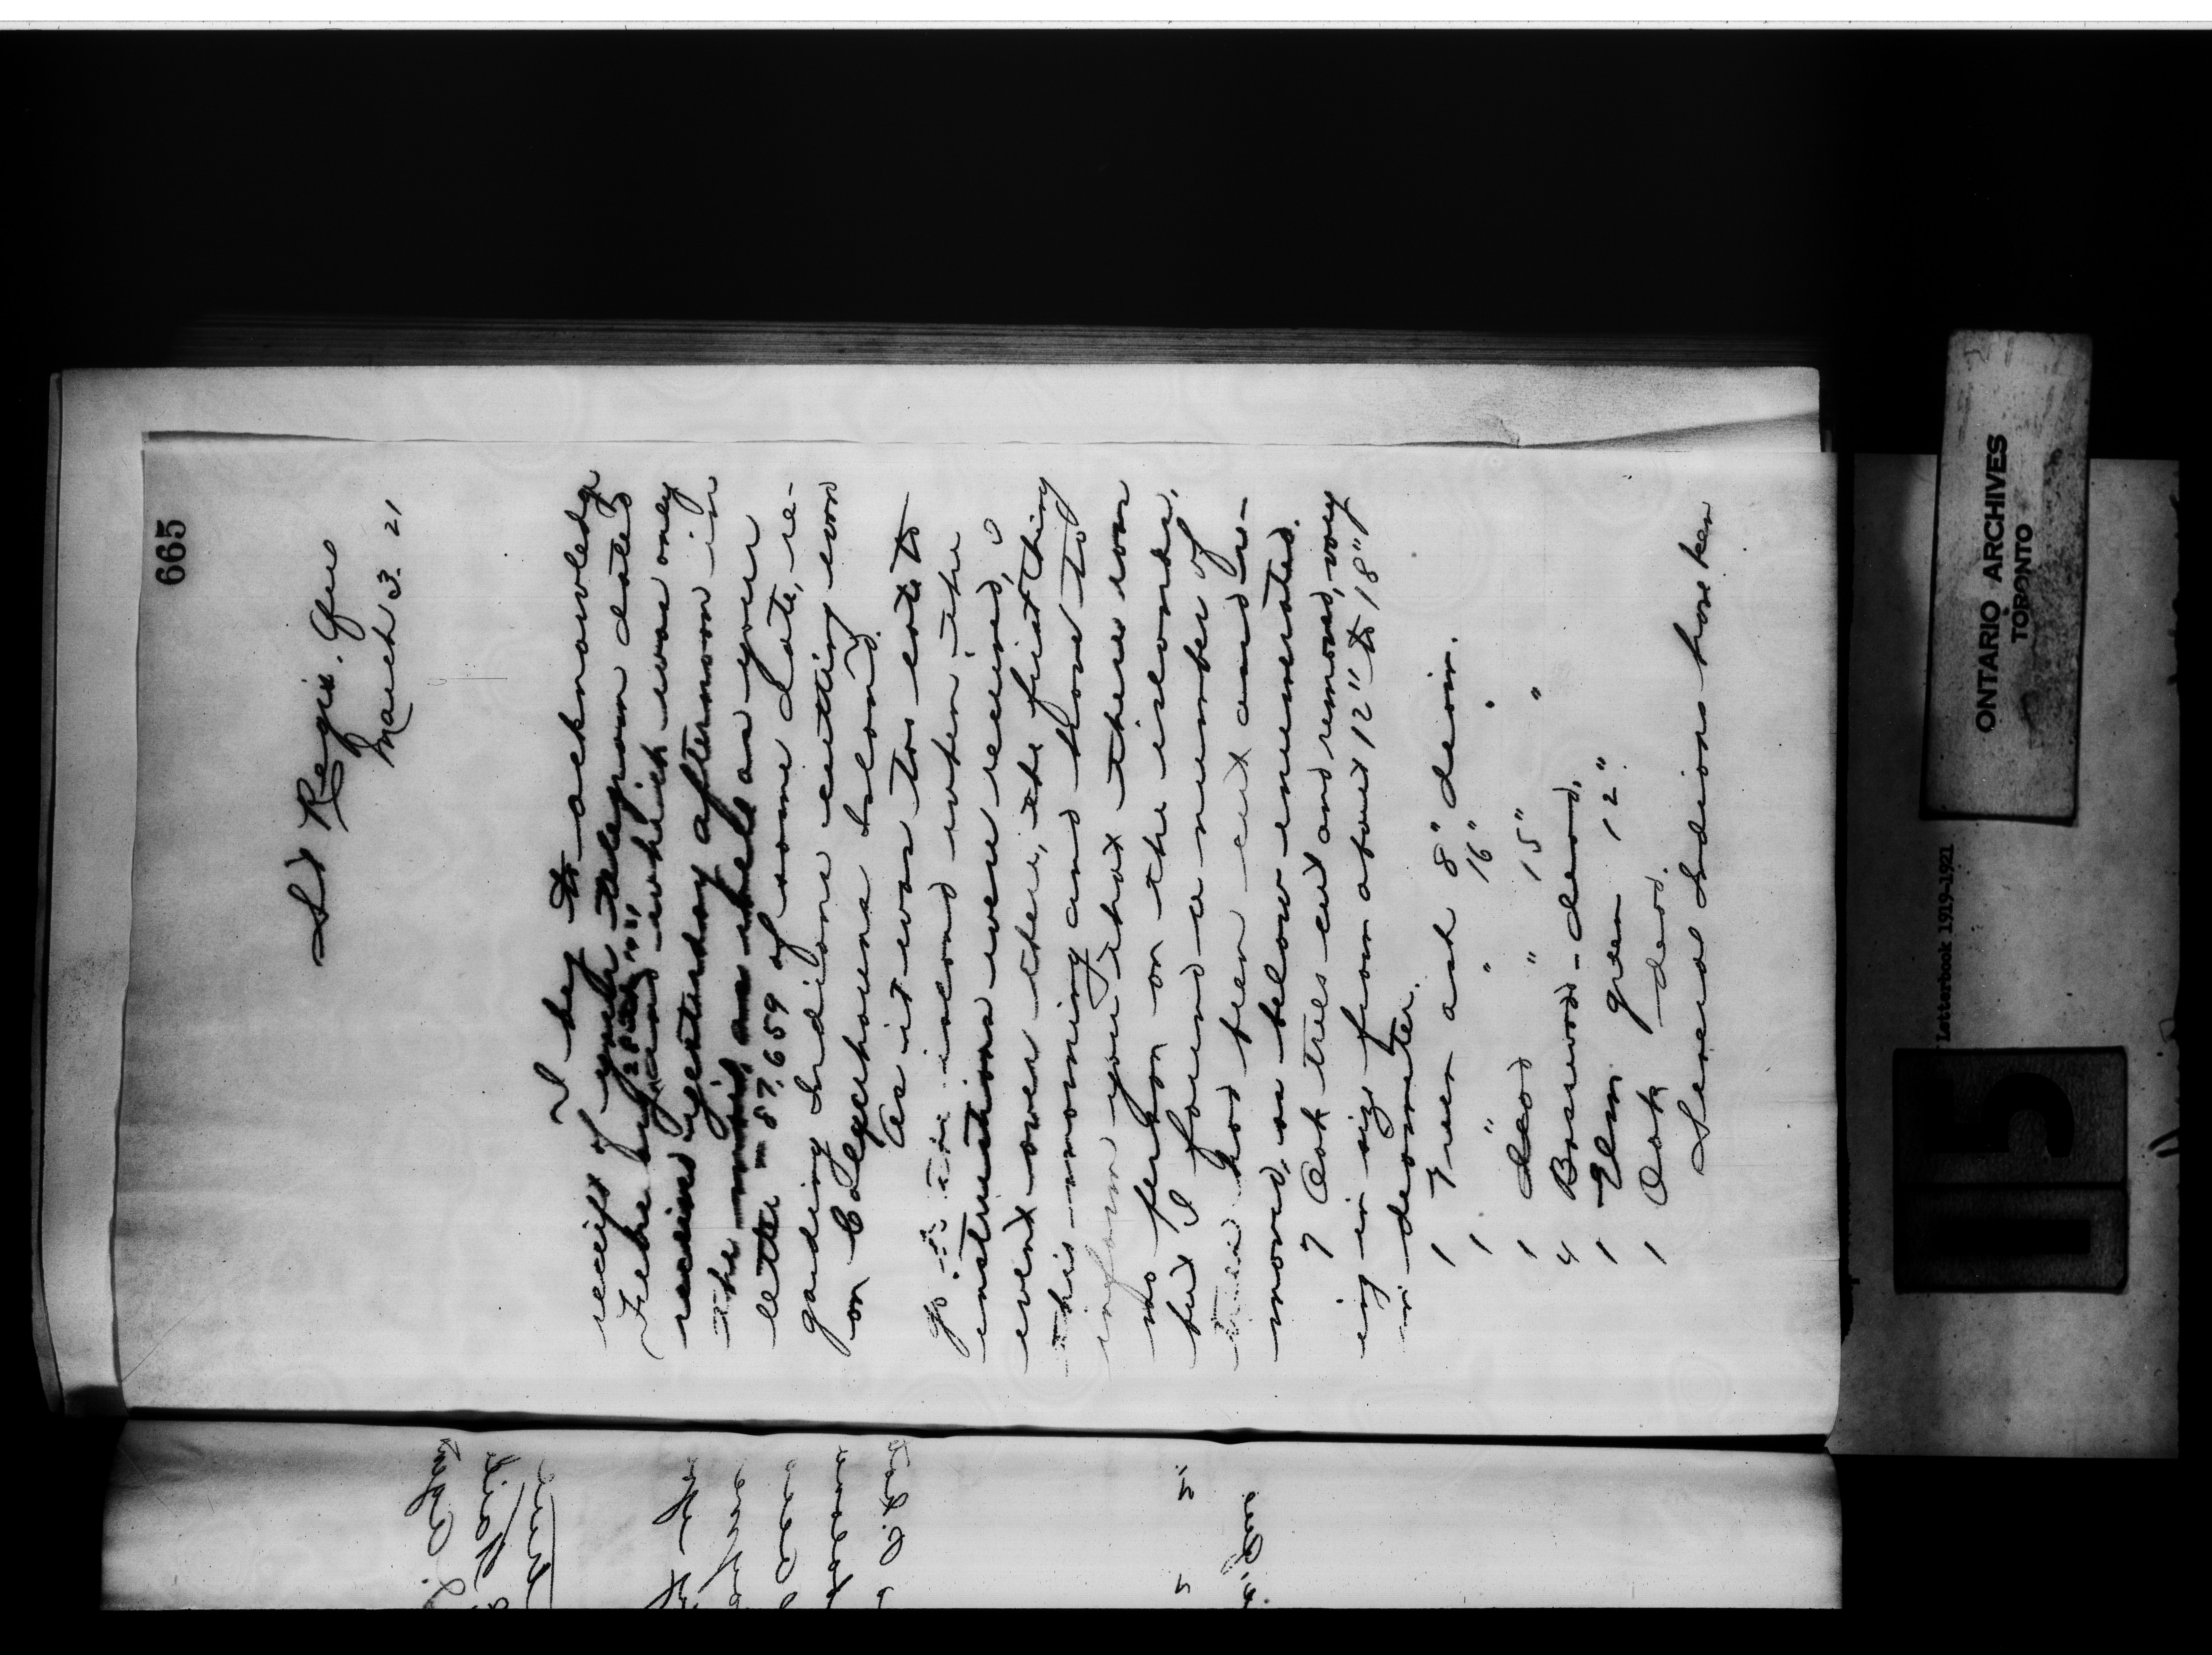 665
St Regis. Que
March 3. 21
I beg to acknowledge
receipt of your telegram dated
Febr 28th 21
and which was only
received yesterday afternoon in
the mail, as well as your
letter — 87,659 of same date, re-
garding Indians cutting wood
on Colquhouns Island.
As it was too late to
go to the island when the
instructions were received, I
went over there, the first thing
this morning and have to
inform you that there was
no person on the islands,
but I found a number of
trees had been cut and re-
moved, as below enumerated.
7 Oak trees cut and removed, vary
ing in size from about 12" to 18"
in diameter.
1 Green ash 8" diam.
1 " " 16" "
1 dead " 15" "
4 Basswood - dead.
1 Elm green 12"
1 Oak dead.
Several Indians have been
ONTARIO ARCHIVES
TORONTO
Letterbook 1919-1921
115